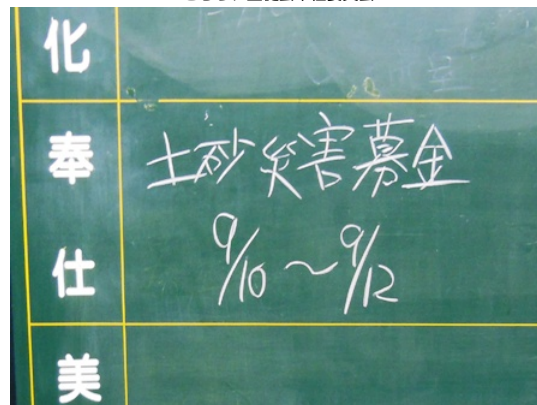 化
奉仕
土砂災害募金
9/10～9/12
美